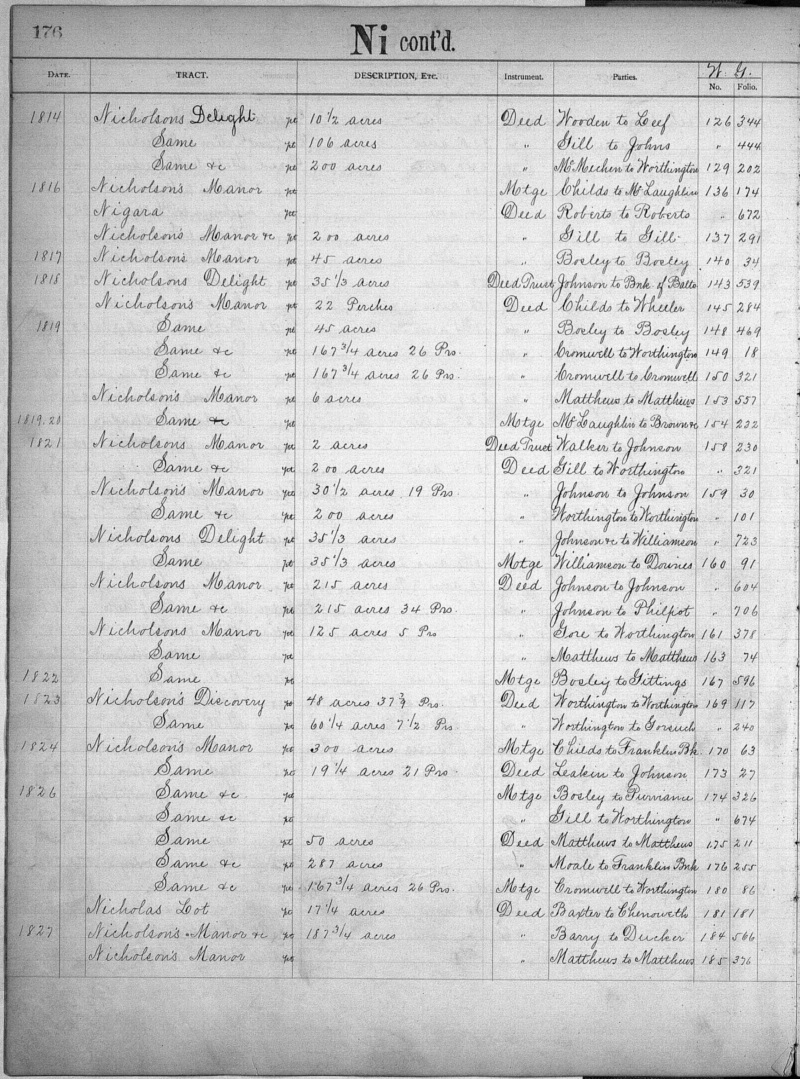 176
Ni cont'd.
DATE. TRACT. DESCRIPTION, ETC. Instrument. Parties. W. G.
No. Folio.
1814 Nicholsons Delight pt 10 1/2 acres Deed Wooden to Leef 126 344
Same pt 106 acres " Gill to Johns " 444
Same &c pt 200 acres " McMechen to Worthington 129 202
1816 Nicholson's Manor pt Mtge Childs to McLaughlin 136 174
Nigara pt Deed Roberts to Roberts " 672
Nicholson's Manor &c pt 200 acres " Gill to Gill 137 291
1817 Nicholson's Manor pt 45 acres " Bosley to Bosley 140 34
1818 Nicholsons Delight pt 35 1/3 acres Deed Trust Johnson to Bnk of Balto 143 539
Nicholson's Manor pt 22 Perches Deed Childs to Wheeler 145 284
1819 Same pt 45 acres " Bosley to Bosley 148 469
Same &c pt 167 3/4 acres 26 Prs. " Cromwell to Worthington 149 18
Same &c pt 167 3/4 acres 26 Prs. " Cromwell to Cromwell 150 321
Nicholson's Manor pt 6 acres " Matthews to Matthews 153 557
1819.20 Same &c pt Mtge McLaughlin to Brown &c 154 232
1821 Nicholsons Manor pt 2 acres Deed Trust Walker to Johnson 158 230
Same &c pt 200 acres Deed Gill to Worthington " 321
Nicholson's Manor pt 30 1/2 acres 19 Prs. " Johnson to Johnson 159 30
Same &c pt 200 acres " Worthington to Worthington " 101
Nicholsons Delight pt 35 1/3 acres " Johnson &c to Williamson " 723
Same pt 35 1/3 acres Mtge Williamson to Downes 160 91
Nicholsons Manor pt 215 acres Deed Johnson to Johnson " 604
Same &c pt 215 acres 34 Prs. " Johnson to Philpot " 706
Nicholsons Manor pt 125 acres 5 Prs " Gore to Worthington 161 378
Same pt " Matthews to Matthews 163 74
1822 Same pt Mtge Bosley to Gittings 167 596
1823 Nicholson's Discovery pt 48 acres 37 Prs. Deed Worthington to Worthington 169 117
Same pt 60 1/4 acres 7 1/2 Prs " Worthington to Gorsuch " 240
1824 Nicholson's Manor pt 300 acres Mtge Childs to Franklin Bk. 170 63
Same pt 19 1/4 acres 21 Prs. Deed Leakin to Johnson 173 27
1826 Same &c pt Mtge Bosley to Purviance 174 326
Same &c pt " Gill to Worthington " 674
Same pt 50 acres Deed Matthews to Matthews 175 211
Same &c pt 287 acres " Moale to Franklin Bnk 176 255
Same &c pt 167 3/4 acres 26 Prs. Mtge Cromwell to Worthington 180 86
Nicholas Lot pt 17 1/4 acres Deed Baxter to Chenoweth 181 181
1827 Nicholson's Manor &c pt 187 3/4 acres " Barry to Ducker 184 566
Nicholson's Manor pt " Matthews to Matthews 185 376